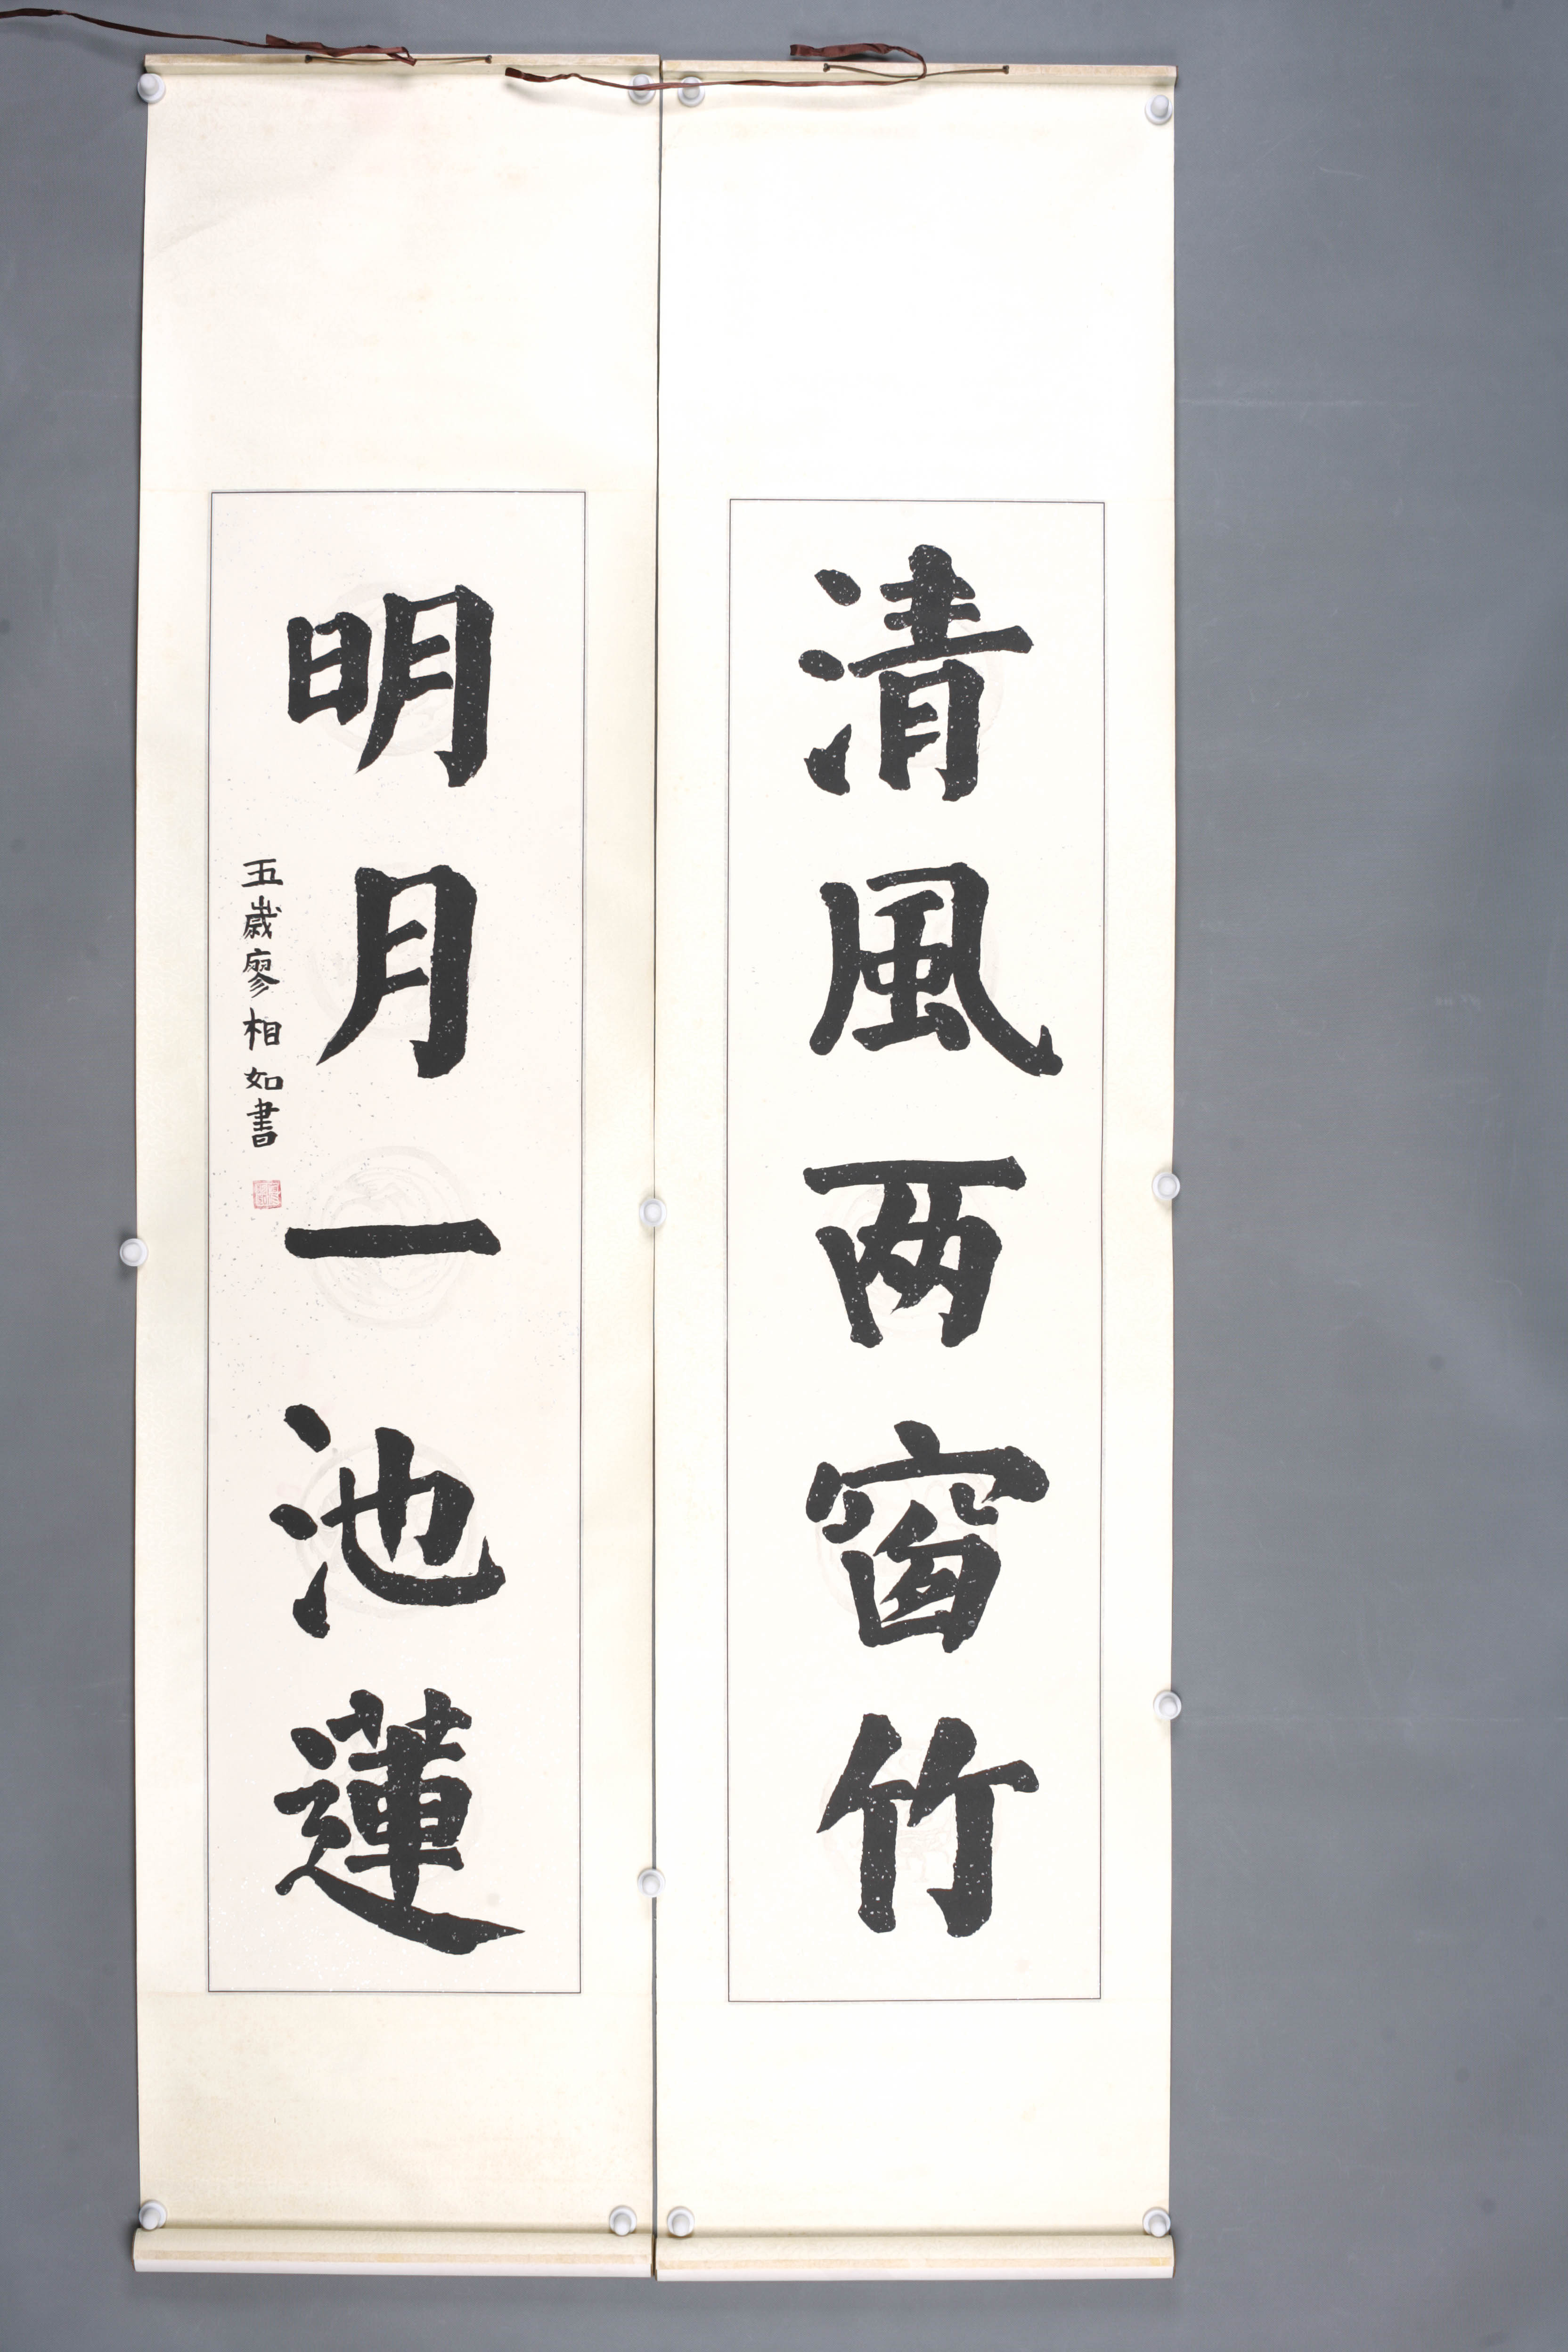 清風两窗竹
明月一池蓮
五歲廖相如書